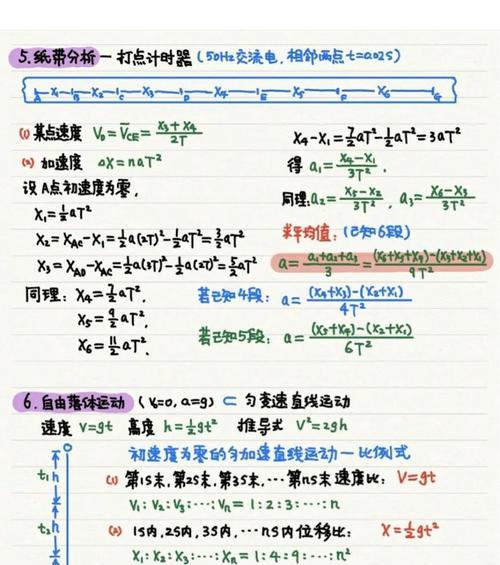 5.纸带分析—打点计时器(50Hz交流电,相邻两点t=0.02S)
A X₁ B X₂ C X₃ D X₄ E X₅ F X₆ G
(1) 某点速度 V_D=V̄_CE=(X₃+X₄)/2T
(2) 加速度 △X=naT²
设A点初速度为零,
X₁=½aT²
X₂=X_AC-X₁=½a(2T)²-½aT²=3/2aT²
X₃=X_AD-X_AC=½a(3T)²-½a(2T)²=5/2aT²
同理: X₄=7/2aT².
X₅=9/2aT².
X₆=11/2aT².
X₄-X₁=7/2aT²-½aT²=3aT²
得 a₁=(X₄-X₁)/3T².
同理:a₂=(X₅-X₂)/3T², a₃=(X₆-X₃)/3T²
求平均值:(已知6段)
a=(a₁+a₂+a₃)/3=((X₆+X₅+X₄)-(X₃+X₂+X₁))/9T²
若已知4段: a=((X₄+X₃)-(X₂+X₁))/4T²
若已知5段: a=((X₅+X₄)-(X₂+X₁))/6T²
6.自由落体运动 (V₀=0,a=g) ⊂ 匀变速直线运动
速度 V=gt 高度 h=½gt² 推导式 V²=2gh
初速度为零的匀加速直线运动—比例式
(1) 第1S末,第2S末,第3S末,…第nS末速度比: V=gt
V₁:V₂:V₃:…:Vₙ=1:2:3:…:n
(2) 1S内,2S内,3S内,…nS内位移比: X=½gt²
X₁:X₂:X₃:…:Xₙ=1:4:9:…:n²
t₁ h
t₂ h